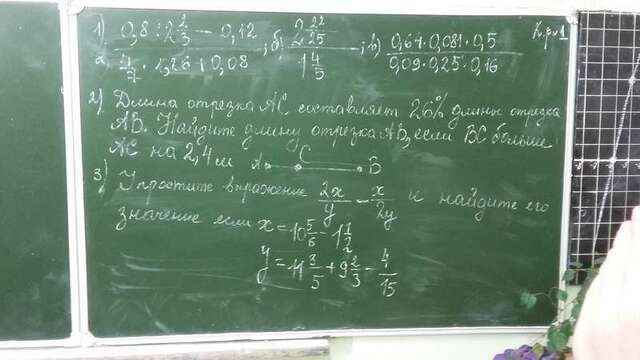 К.р №1
1) а) (0,8 : 2 2/3 - 0,12) / (4/7 · 1,26 + 0,08) ; б) (2 22/25) / (1 4/5) ; в) (0,64 · 0,081 · 0,5) / (0,09 · 0,25 · 0,16)
2) Длина отрезка AC составляет 26% длины отрезка
AB. Найдите длину отрезка AB, если BC больше
AC на 2,4 см
A C B
3) Упростите выражение 2x/y - x/2y и найдите его
значение если x = 10 5/6 - 1 1/2
y = 11 3/5 + 9 2/3 - 4/15